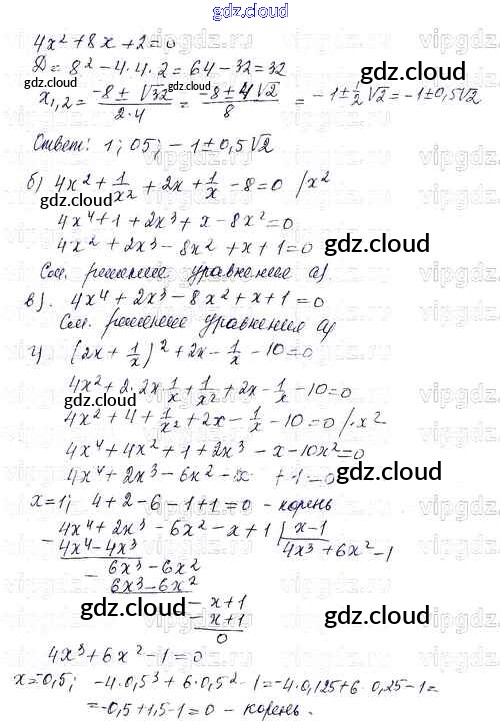 gdz.cloud
4x² + 8x + 2 = 0
D = 8² - 4·4·2 = 64 - 32 = 32
x₁,₂ = (-8 ± √32)/(2·4) = (-8 ± 4√2)/8 = -1 ± 1/2 √2 = -1 ± 0,5√2
Ответ: 1; 05; -1 ± 0,5√2
б) 4x² + 1/x² + 2x + 1/x - 8 = 0 /x²
4x⁴ + 1 + 2x³ + x - 8x² = 0
4x² + 2x³ - 8x² + x + 1 = 0
См. решение уравнение а).
в). 4x⁴ + 2x³ - 8x² + x + 1 = 0
См. решение уравнения а)
г) (2x + 1/x)² + 2x - 1/x - 10 = 0
4x² + 2·2x 1/x + 1/x² + 2x - 1/x - 10 = 0
4x² + 4 + 1/x² + 2x - 1/x - 10 = 0 /·x²
4x⁴ + 4x² + 1 + 2x³ - x - 10x² = 0
4x⁴ + 2x³ - 6x² - x + 1 = 0
x = 1; 4 + 2 - 6 - 1 + 1 = 0 - корень
4x⁴ + 2x³ - 6x² - x + 1 | x - 1
- 4x⁴ - 4x³ 4x³ + 6x² - 1
- 6x³ - 6x²
6x³ - 6x²
- x + 1
- x + 1
0
4x³ + 6x² - 1 = 0
x = -0,5; -4·0,5³ + 6·0,5² - 1 = -4·0,125 + 6·0,25 - 1 =
= -0,5 + 1,5 - 1 = 0 - корень.